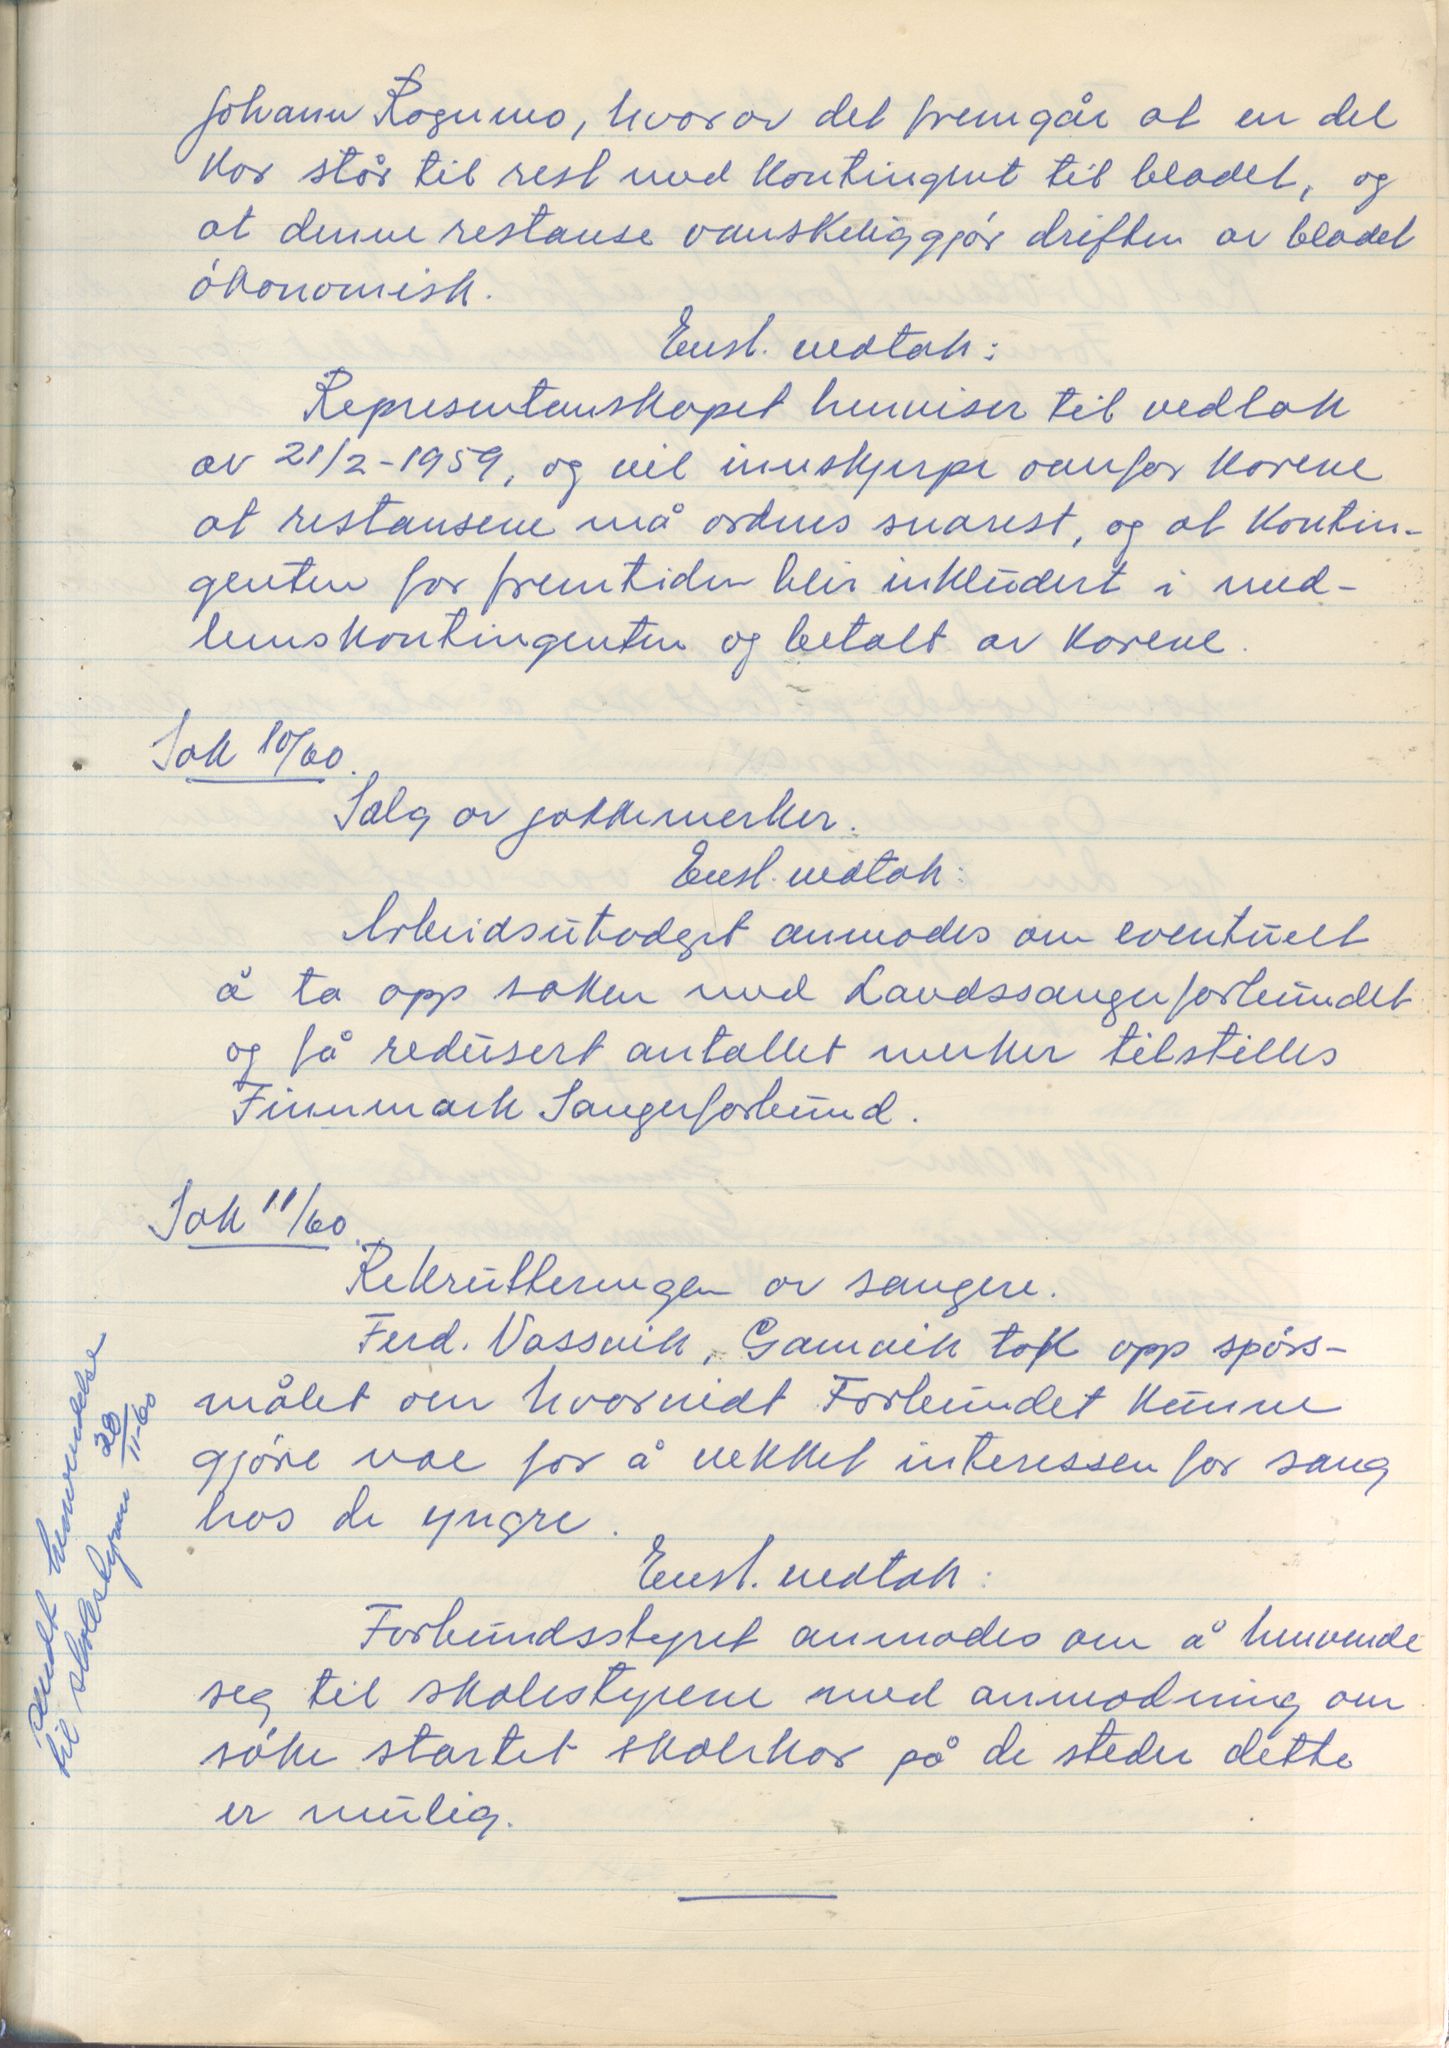 Johann Rognmo, hvorav det fremgår at en del
kor står til rest med kontingent til bladet, og
at denne restanse vanskeliggjør driften av bladet
økonomisk.
Enst. vedtak:
Representanskapet henviser til vedtak
av 21/2-1959, og vil innskjerpe ovanfor korene
at restansene må ordnes snarest, og at kontin-
genten for fremtiden blir inkludert i med-
lemskontingenten og betalt av korene.
Sak 10/60.
Salg av jakkemerker.
Enst. vedtak:
Arbeidsutvalget anmodes om eventuelt
å ta opp saken med Landssangerforbundet
og få redusert antallet merker tilstilles
Finnmark Sangerforbund.
Sak 11/60.
Rekrutteringen av sangere.
Ferd. Vassvik, Gamvik tok opp spørs-
målet om hvorvidt Forbundet kunne
gjøre noe for å vekket interessen for sang
hos de yngre.
Enst. vedtak:
Forbundsstyret anmodes om å henvende
seg til skolestyrene med anmodning om
søke startet skolekor på de steder dette
er mulig.
Sendt henvendelse
til skolestyrene 28/11-60